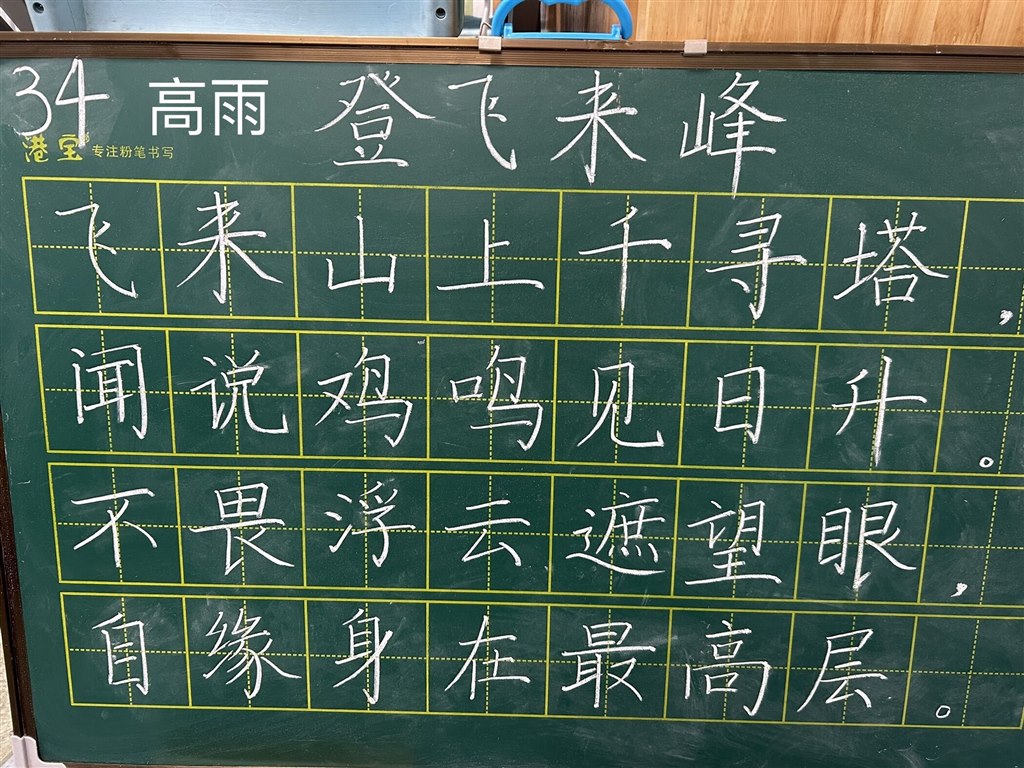 34 高雨 登飞来峰
港宝 专注粉笔书写
飞来山上千寻塔,
闻说鸡鸣见日升。
不畏浮云遮望眼,
自缘身在最高层。